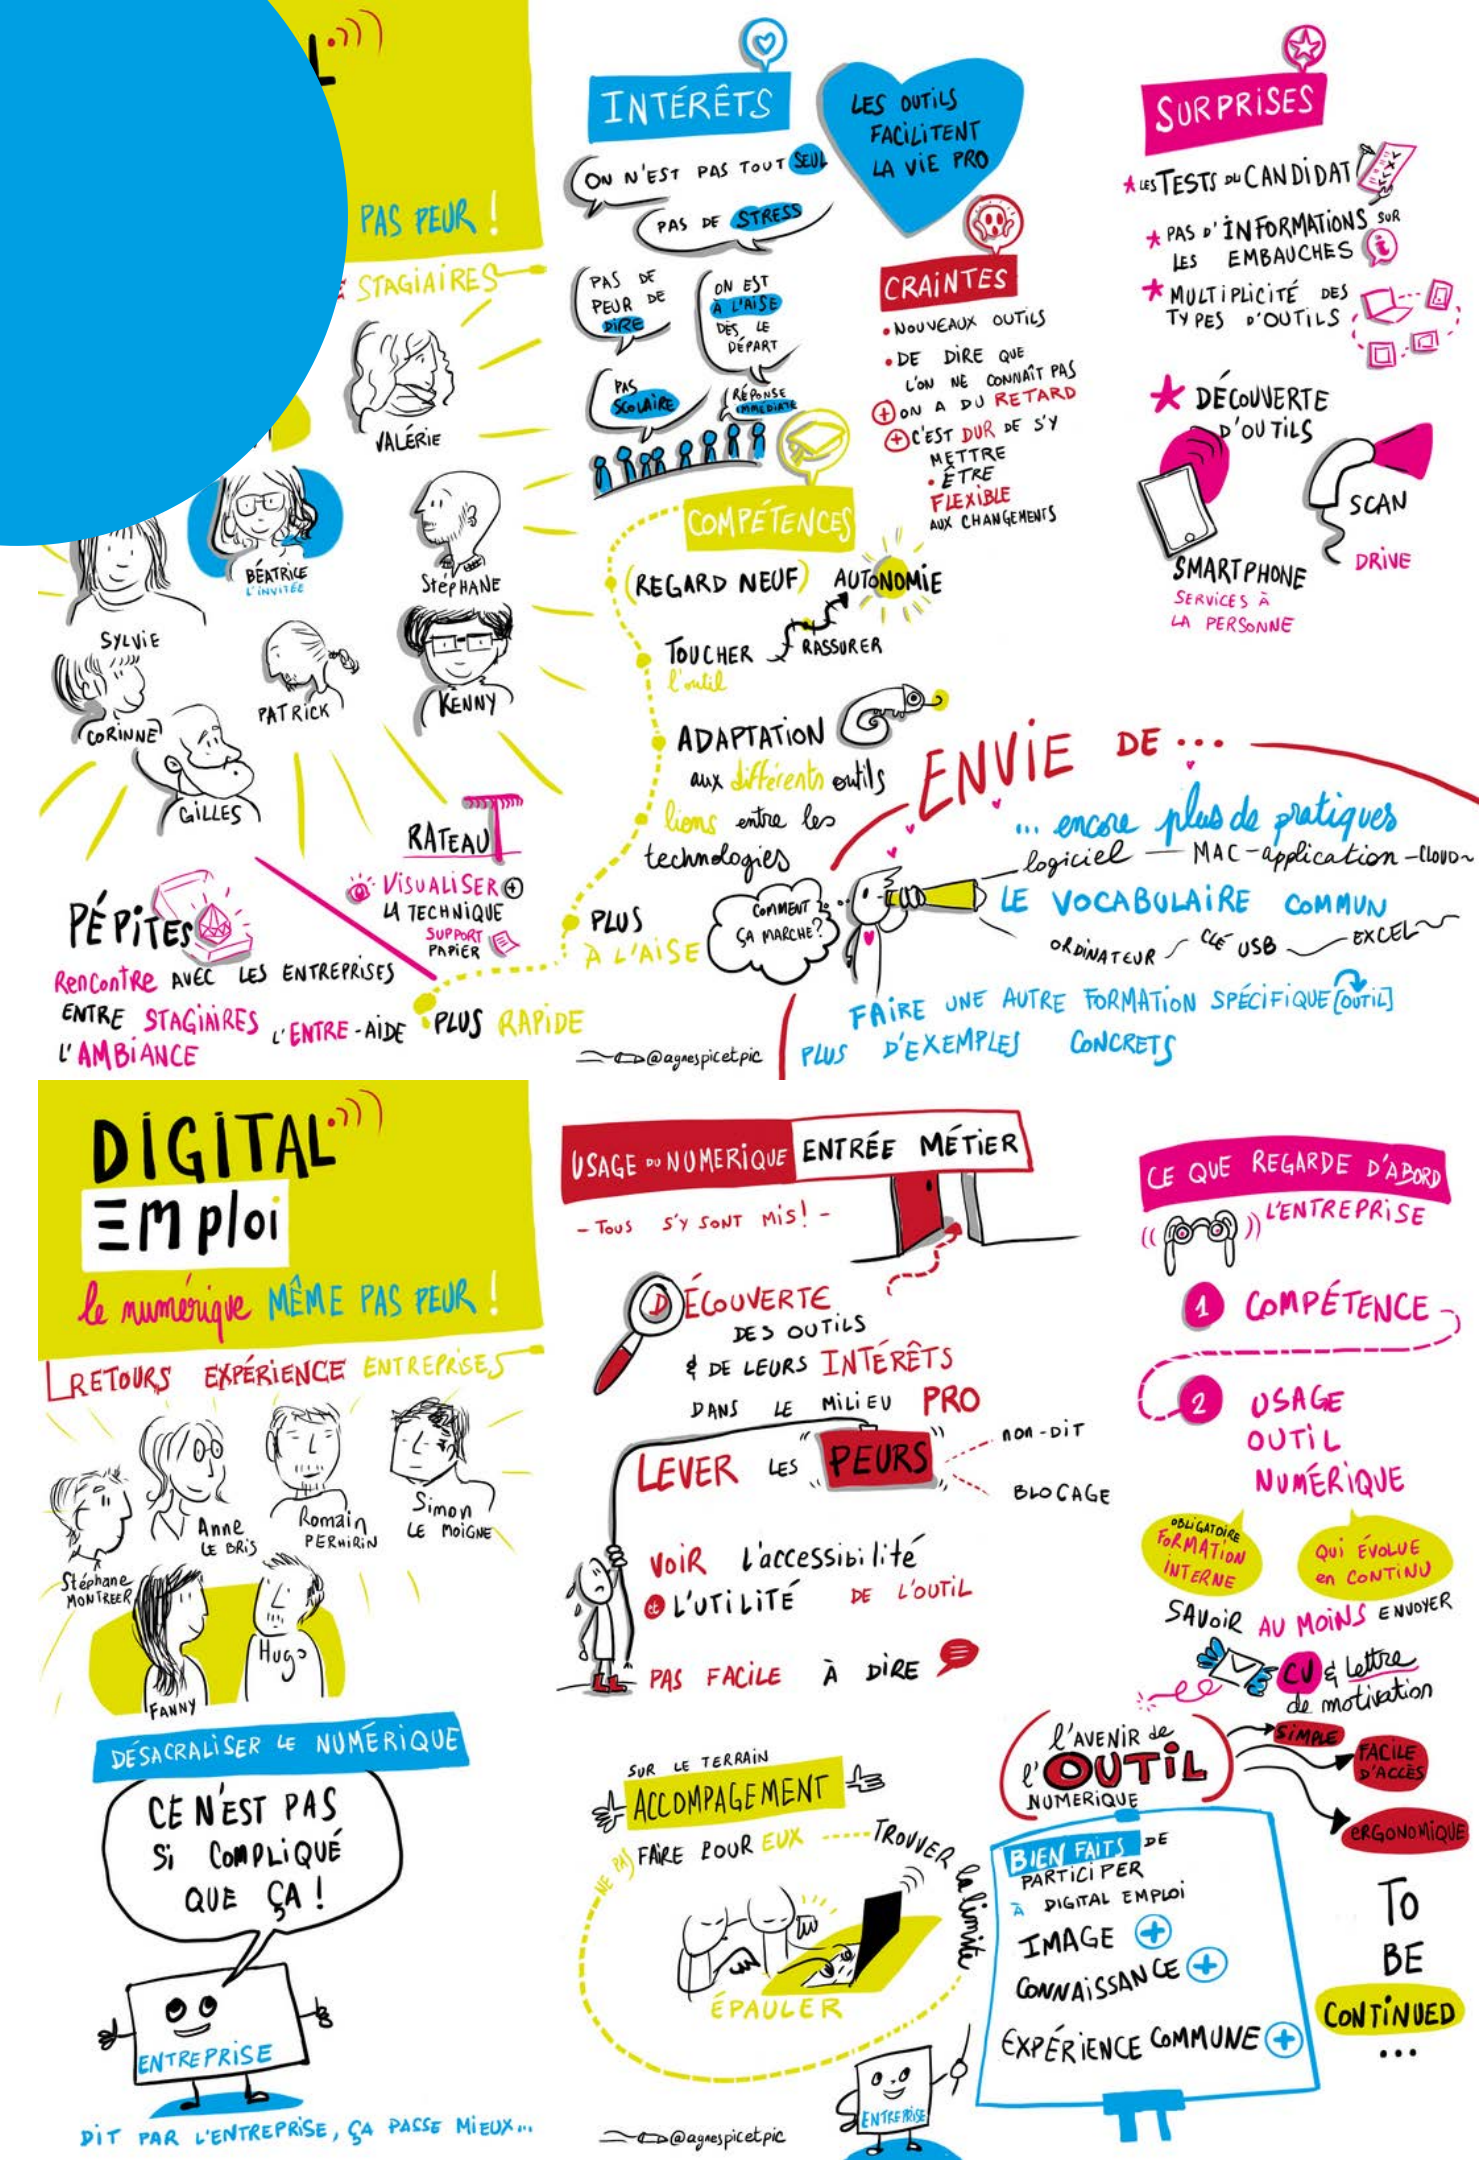 L
PAS PEUR !
STAGIAIRES
VALÉRIE
BÉATRICE
L'INVITÉE
STÉPHANE
SYLVIE
CORINNE
PATRICK
KENNY
GILLES
RATEAU
VISUALISER +
LA TECHNIQUE
SUPPORT
PAPIER
PÉPITES
RENCONTRE AVEC LES ENTREPRISES
ENTRE STAGIAIRES L'ENTRE-AIDE
L'AMBIANCE
INTÉRÊTS
ON N'EST PAS TOUT SEUL
PAS DE STRESS
PAS DE
PEUR DE
DIRE
ON EST
À L'AISE
DÈS LE
DÉPART
PAS
SCOLAIRE
RÉPONSE
IMMÉDIATE
LES OUTILS
FACILITENT
LA VIE PRO
CRAINTES
• NOUVEAUX OUTILS
• DE DIRE QUE
L'ON NE CONNAÎT PAS
+ ON A DU RETARD
+ C'EST DUR DE S'Y
METTRE
• ÊTRE
FLEXIBLE
AUX CHANGEMENTS
COMPÉTENCES
(REGARD NEUF) AUTONOMIE
TOUCHER RASSURER
l'outil
ADAPTATION
aux différents outils
liens entre les
technologies
PLUS
À L'AISE
PLUS RAPIDE
@agnespicetpic
SURPRISES
LES TESTS DU CANDIDAT
PAS D'INFORMATIONS SUR
LES EMBAUCHES
MULTIPLICITÉ DES
TYPES D'OUTILS
DÉCOUVERTE
D'OUTILS
SCAN
DRIVE
SMARTPHONE
SERVICES À
LA PERSONNE
ENVIE DE ...
... encore plus de pratiques
logiciel — MAC - application - CLOUD
COMMENT
ÇA MARCHE?
LE VOCABULAIRE COMMUN
ORDINATEUR CLÉ USB EXCEL
FAIRE UNE AUTRE FORMATION SPÉCIFIQUE [OUTIL]
PLUS D'EXEMPLES CONCRETS
DIGITAL
EMploi
le numérique MÊME PAS PEUR !
RETOURS EXPÉRIENCE ENTREPRISES
Stéphane
MONTREER
Anne
LE BRIS
Romain
PERHIRIN
Simon
LE MOIGNE
FANNY
Hugo
DÉSACRALISER LE NUMÉRIQUE
CE N'EST PAS
SI COMPLIQUÉ
QUE ÇA !
ENTREPRISE
DIT PAR L'ENTREPRISE, ÇA PASSE MIEUX...
USAGE DU NUMERIQUE ENTRÉE MÉTIER
- TOUS S'Y SONT MIS! -
DÉCOUVERTE
DES OUTILS
& DE LEURS INTÉRÊTS
DANS LE MILIEU PRO
LEVER LES PEURS
NON-DIT
BLOCAGE
VOIR L'accessibilité
et L'UTILITÉ DE L'OUTIL
PAS FACILE À DIRE
SUR LE TERRAIN
ACCOMPAGEMENT
NE PAS FAIRE POUR EUX ----- TROUVER la limite
ÉPAULER
ENTREPRISE
@agnespicetpic
CE QUE REGARDE D'ABORD
L'ENTREPRISE
1 COMPÉTENCE
2 USAGE
OUTIL
NUMÉRIQUE
OBLIGATOIRE
FORMATION
INTERNE
QUI ÉVOLUE
en CONTINU
SAVOIR AU MOINS ENVOYER
CV & Lettre
de motivation
l'AVENIR de
l'OUTIL
NUMERIQUE
SIMPLE
FACILE
D'ACCÈS
ERGONOMIQUE
BIEN FAITS DE
PARTICIPER
À DIGITAL EMPLOI
IMAGE +
CONNAISSANCE +
EXPÉRIENCE COMMUNE +
TO
BE
CONTINUED
...